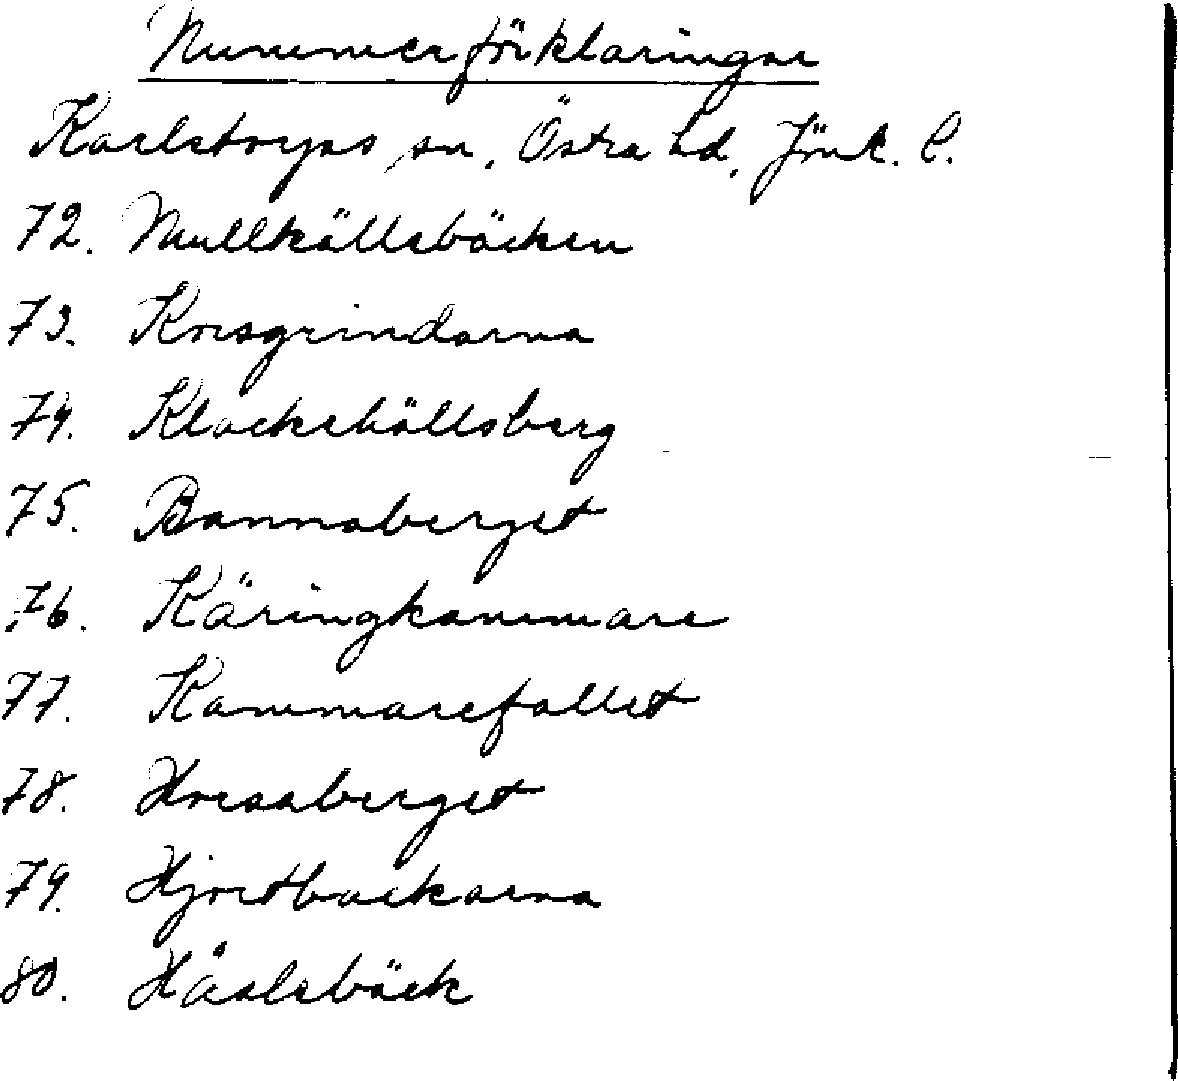 Nummerförklaringar
Karlstorps sn, Östra hd, Jönk. l.
72. Mullkällebäcken
73. Korsgrindarna
74. Klockehällsberg
75. Bannaberget
76. Käringkammare
77. Kammarefallet
78. Horsaberget
79. Hjortbackarna
80. Håalebäck